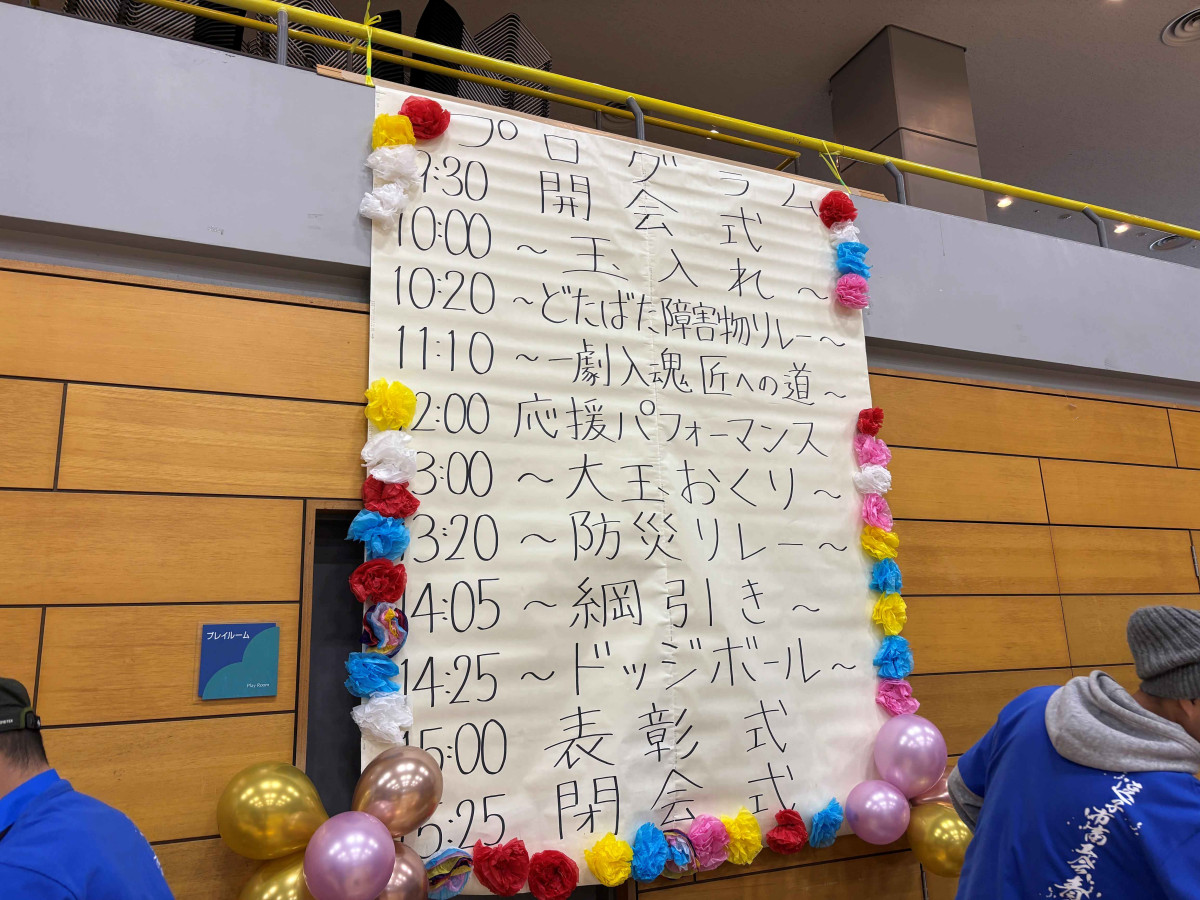 プログラム
9:30 開会式
10:00 ～玉入れ～
10:20 ～どたばた障害物リレー～
11:10 ～一劇入魂匠への道～
12:00 応援パフォーマンス
3:00 ～大玉おくり～
3:20 ～防災リレー～
14:05 ～綱引き～
14:25 ～ドッジボール～
15:00 表彰式
5:25 閉会式
プレイルーム
Play Room